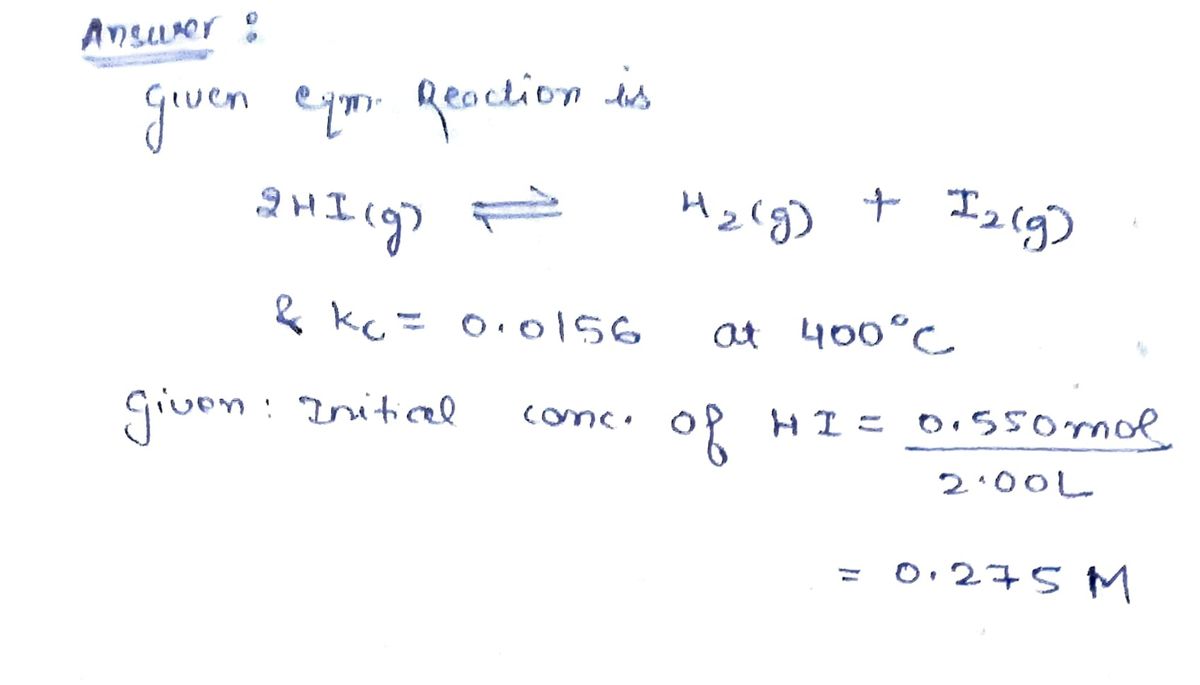 Answer :
given eqm. Reaction is
2HI(g) ⇌ H2(g) + I2(g)
& kc = 0.0156 at 400°C
given : Initial conc. of HI = 0.550mol
2.00L
= 0.275 M